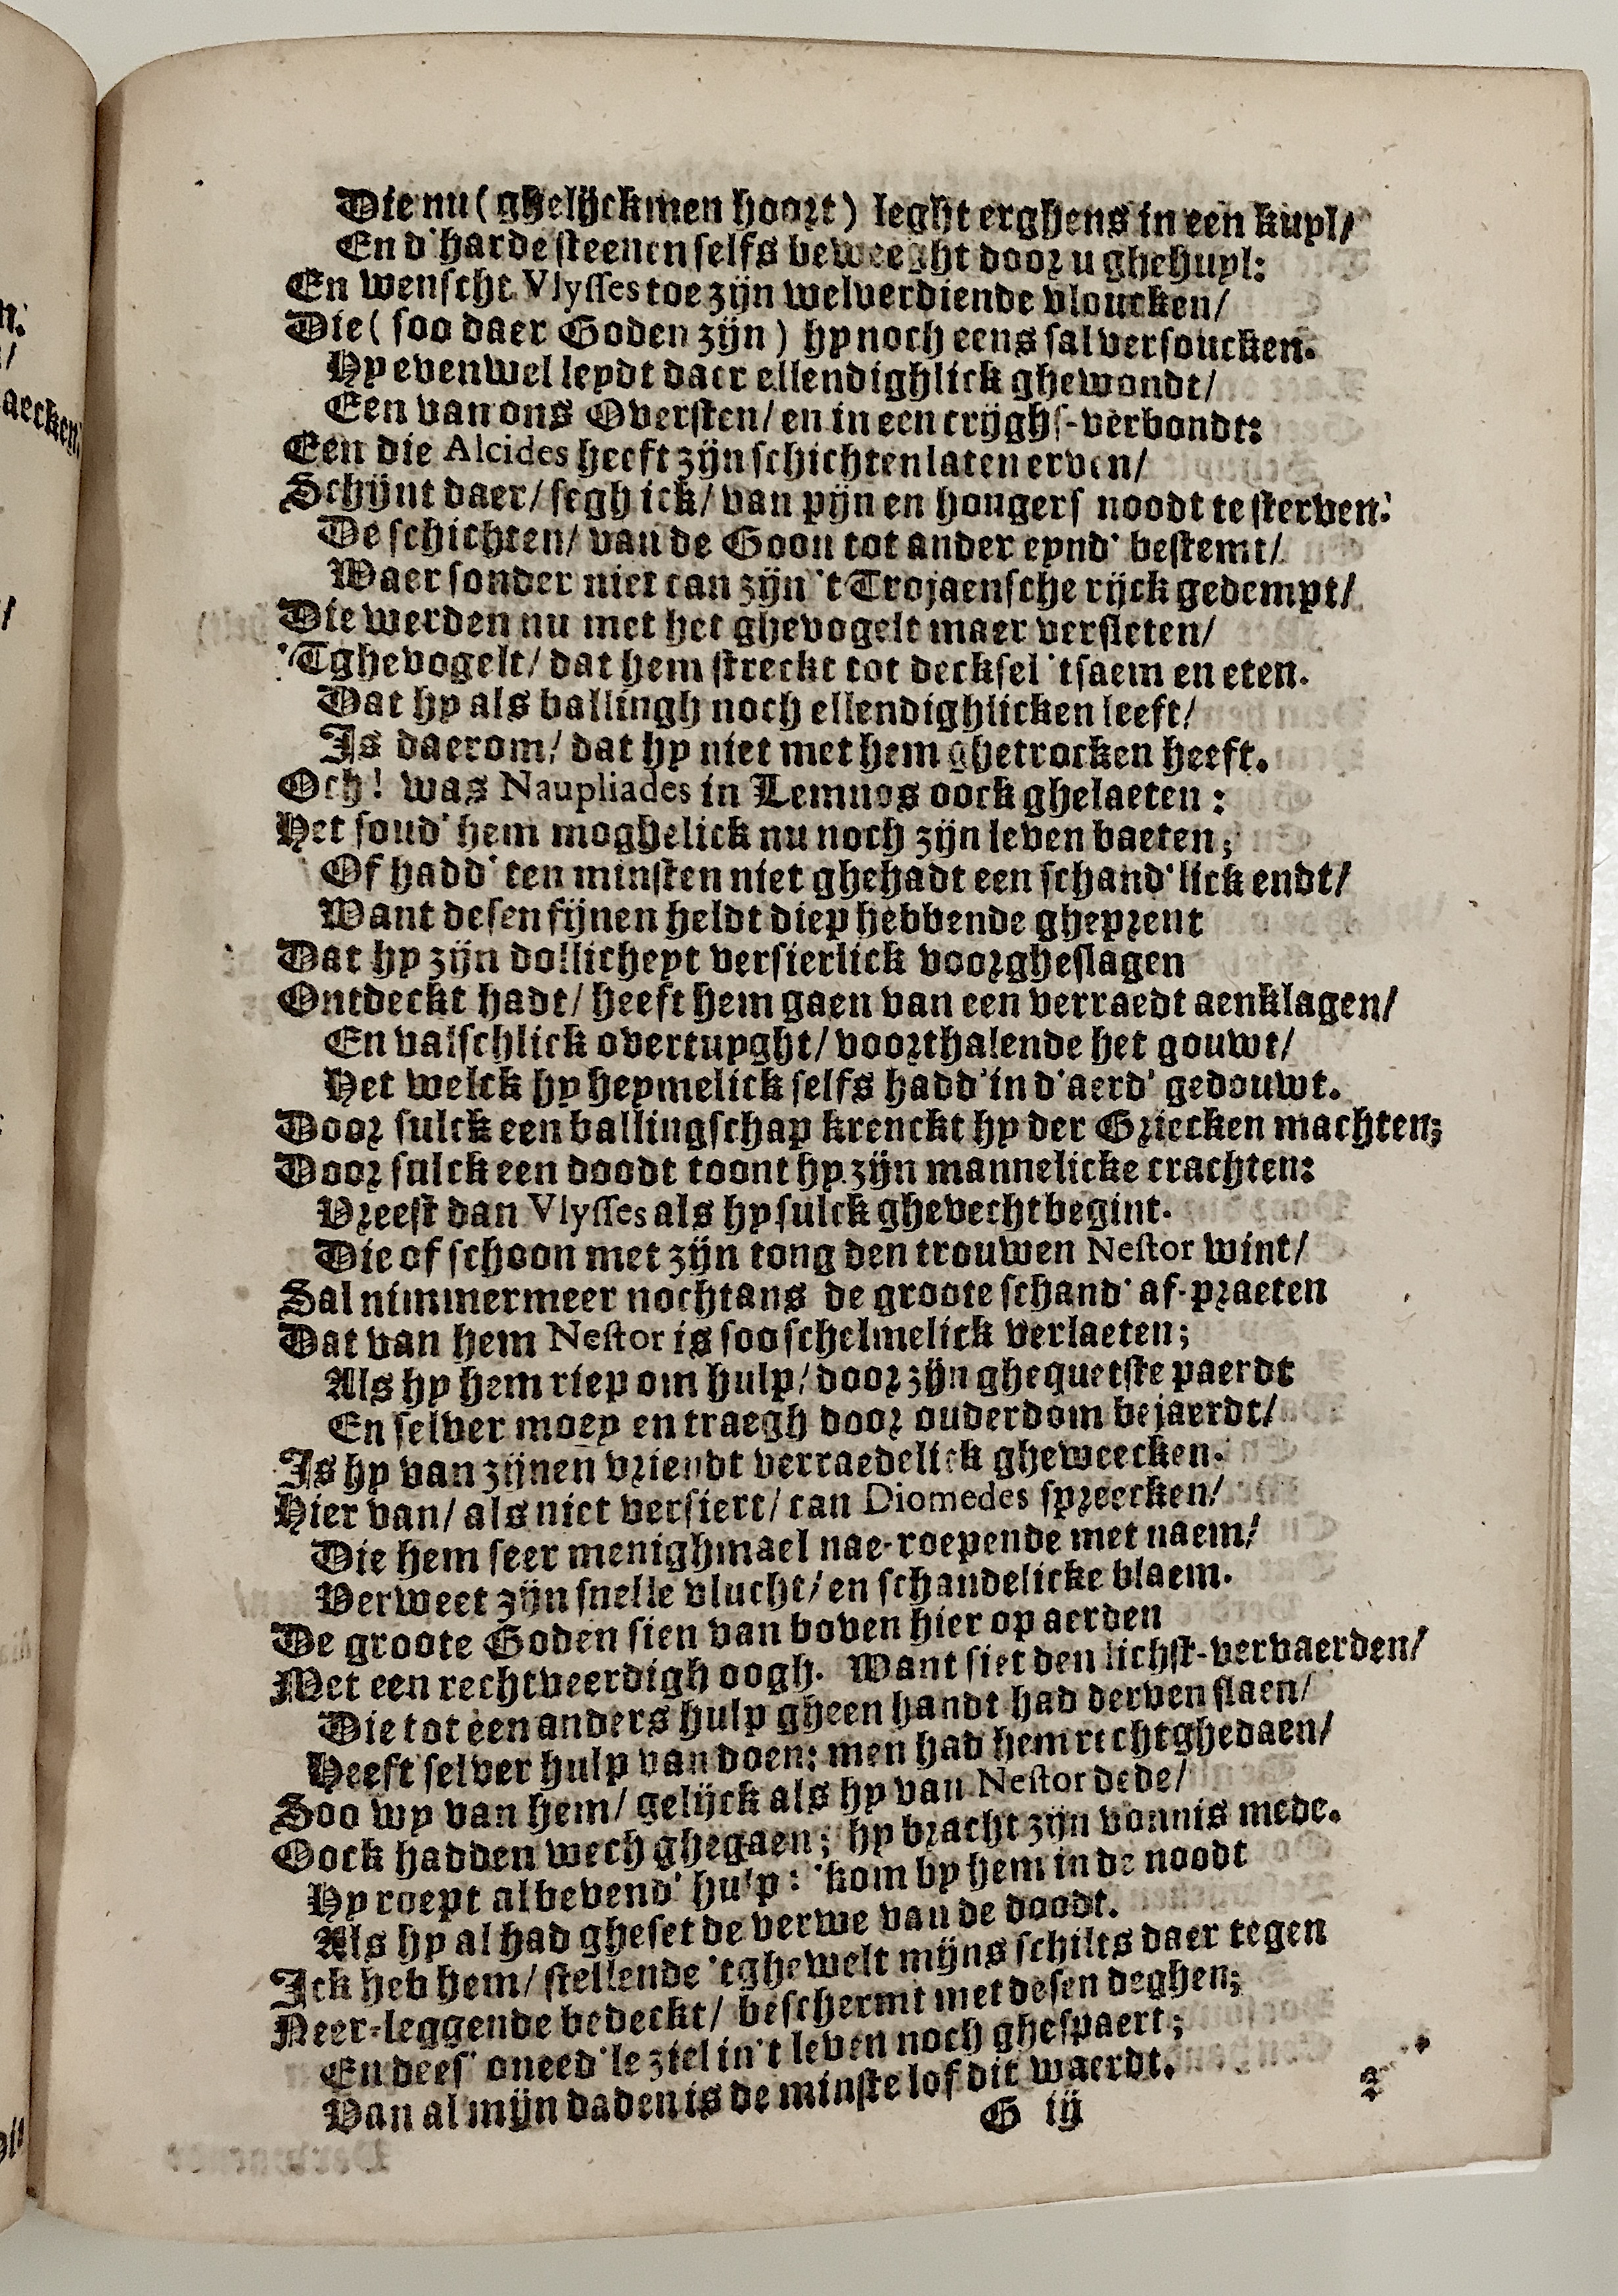 Die nu (ghelijckmen hoort) leght erghens in een kuyl/
En d'harde steenen selfs beweeght door u ghehuyl:
En wenscht Vlysses toe zijn welverdiende vloucken/
Die (soo daer Goden zijn) hy noch eens sal versoucken.
Hy evenwel leydt daer ellendighlick ghewondt/
Een van ons Oversten/ en in een crijghs-verbondt:
Een die Alcides heeft zijn schichten laten erven/
Schijnt daer/ segh ick/ van pijn en hongers noodt te sterven:
De schichten/ van de Goon tot ander eynd' bestemt/
Waer sonder niet can zijn 't Trojaensche rijck gedempt/
Die werden nu met het ghevogelt maer versleten/
'Tghevogelt/ dat hem streckt tot decksel 'tsaem en eten.
Dat hy als ballingh noch ellendighlicken leeft/
Is daerom/ dat hy niet met hem ghetrocken heeft.
Och! was Naupliades in Lemnos oock ghelaeten:
Het soud' hem moghelick nu noch zijn leven baeten;
Of hadd' ten minsten niet ghehadt een schand'lick endt/
Want desen fijnen heldt diep hebbende gheprent
Dat hy zijn dollicheyt versierlick voorgheslagen
Ontdeckt hadt/ heeft hem gaen van een verraedt aenklagen/
En valschlick overtuyght/ voorthalende het gouwt/
Het welck hy heymelick selfs hadd' in d'aerd' gedouwt.
Door sulck een ballingschap krenckt hy der Griecken machten;
Door sulck een doodt toont hy zijn mannelicke crachten:
Vreest dan Vlysses als hy sulck ghevecht begint.
Die of schoon met zijn tong den trouwen Nestor wint/
Sal nimmermeer nochtans de groote schand' af-praeten
Dat van hem Nestor is soo schelmelick verlaeten;
Als hy hem riep om hulp/ door zijn ghequetste paerdt
En selver moey en traegh door ouderdom bejaerdt/
Is hy van zijnen vriendt verraedelick gheweecken.
Hier van/ als niet versiert/ can Diomedes spreecken/
Die hem seer menighmael nae-roepende met naem/
Verweet zijn snelle vlucht/ en schandelicke blaem.
De groote Goden sien van boven hier op aerden
Met een rechtveerdigh oogh. Want siet den lichst-vervaerden/
Die tot een anders hulp gheen handt had derven slaen/
Heeft selver hulp van doen: men had hem recht ghedaen/
Soo wy van hem/ gelijck als hy van Nestor dede/
Oock hadden wech ghegaen; hy bracht zijn vonnis mede.
Hy roept albevend' hulp: 'kom by hem in de noodt
Als hy al had gheset de verwe van de doodt.
Ick heb hem/ stellende 'tghewelt mijns schilts daer tegen
Neer-leggende bedeckt/ beschermt met desen deghen;
En dees' oneed'le ziel in't leven noch ghespaert;
Van al mijn daden is de minste lof dit waerdt.
G ij